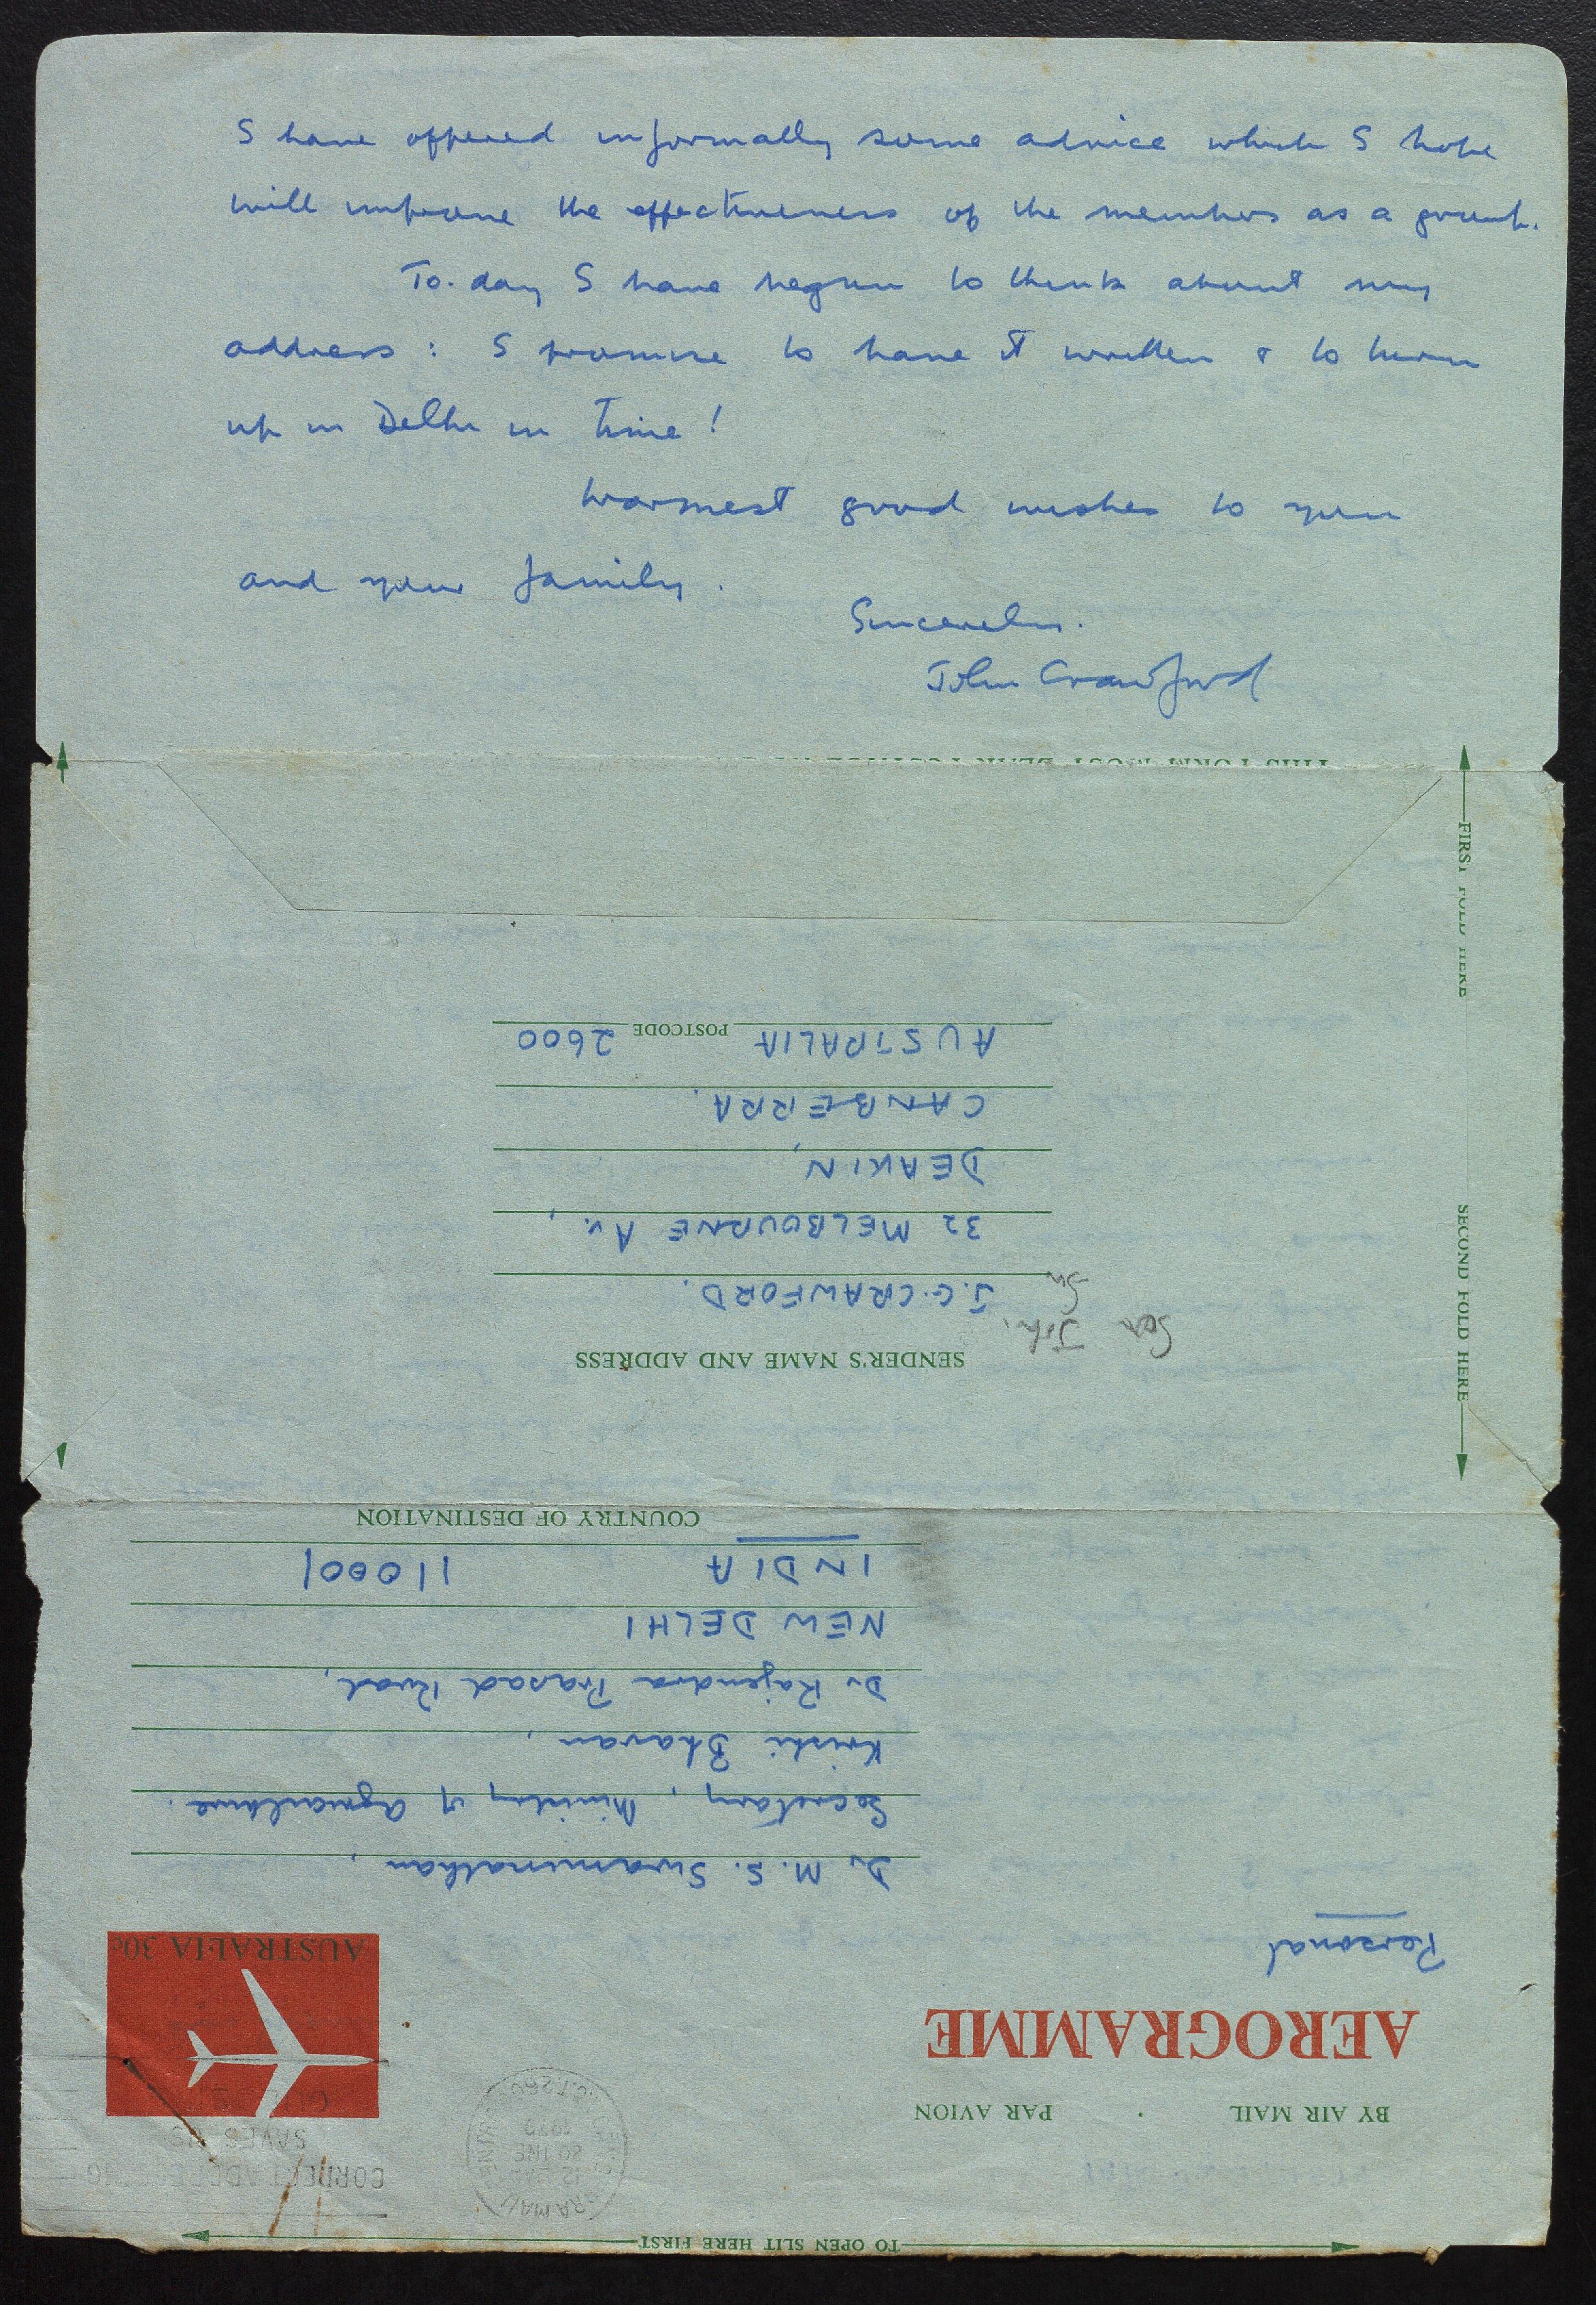 I have offered informally some advice which I hope
will improve the effectiveness of the members as a group.
To-day I have begun to think about my
address: I promise to have it written & to turn
up in Delhi in time!
Warmest good wishes to you
and your family.
Sincerely.
John Crawford
THIS FORM MUST BEAR
FIRST FOLD HERE
SECOND FOLD HERE
AUSTRALIA POSTCODE 2600
CANBERRA.
DEAKIN,
32 MELBOURNE Av.,
J.G. CRAWFORD.
Sir
Sir John
SENDER'S NAME AND ADDRESS
COUNTRY OF DESTINATION
INDIA 110001
NEW DELHI
Dr Rajendra Prasad Road,
Krishi Bhavan,
Secretary, Ministry of Agriculture.
Dr M. S. Swaminathan,
Personal
AUSTRALIA 30c
AEROGRAMME
BY AIR MAIL · PAR AVION
SAVES
CORRECT ADDRESSING
TO OPEN SLIT HERE FIRST